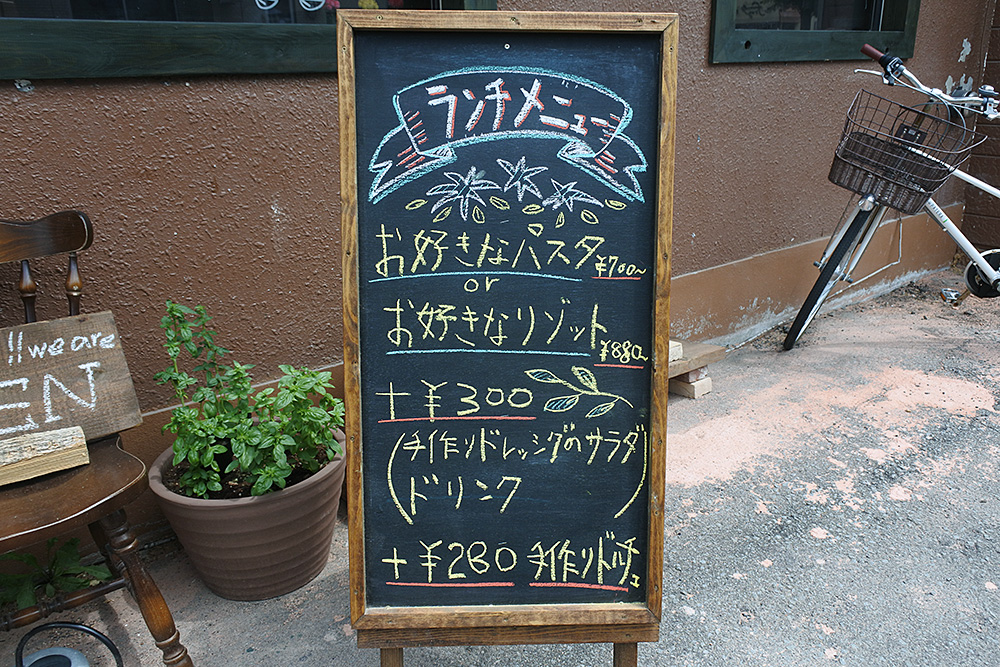 ランチメニュー
お好きなパスタ ¥700~
or
お好きなリゾット ¥880~
+¥300
(手作りドレッシングのサラダ
ドリンク)
+¥280 手作りドルチェ
!! we are
EN